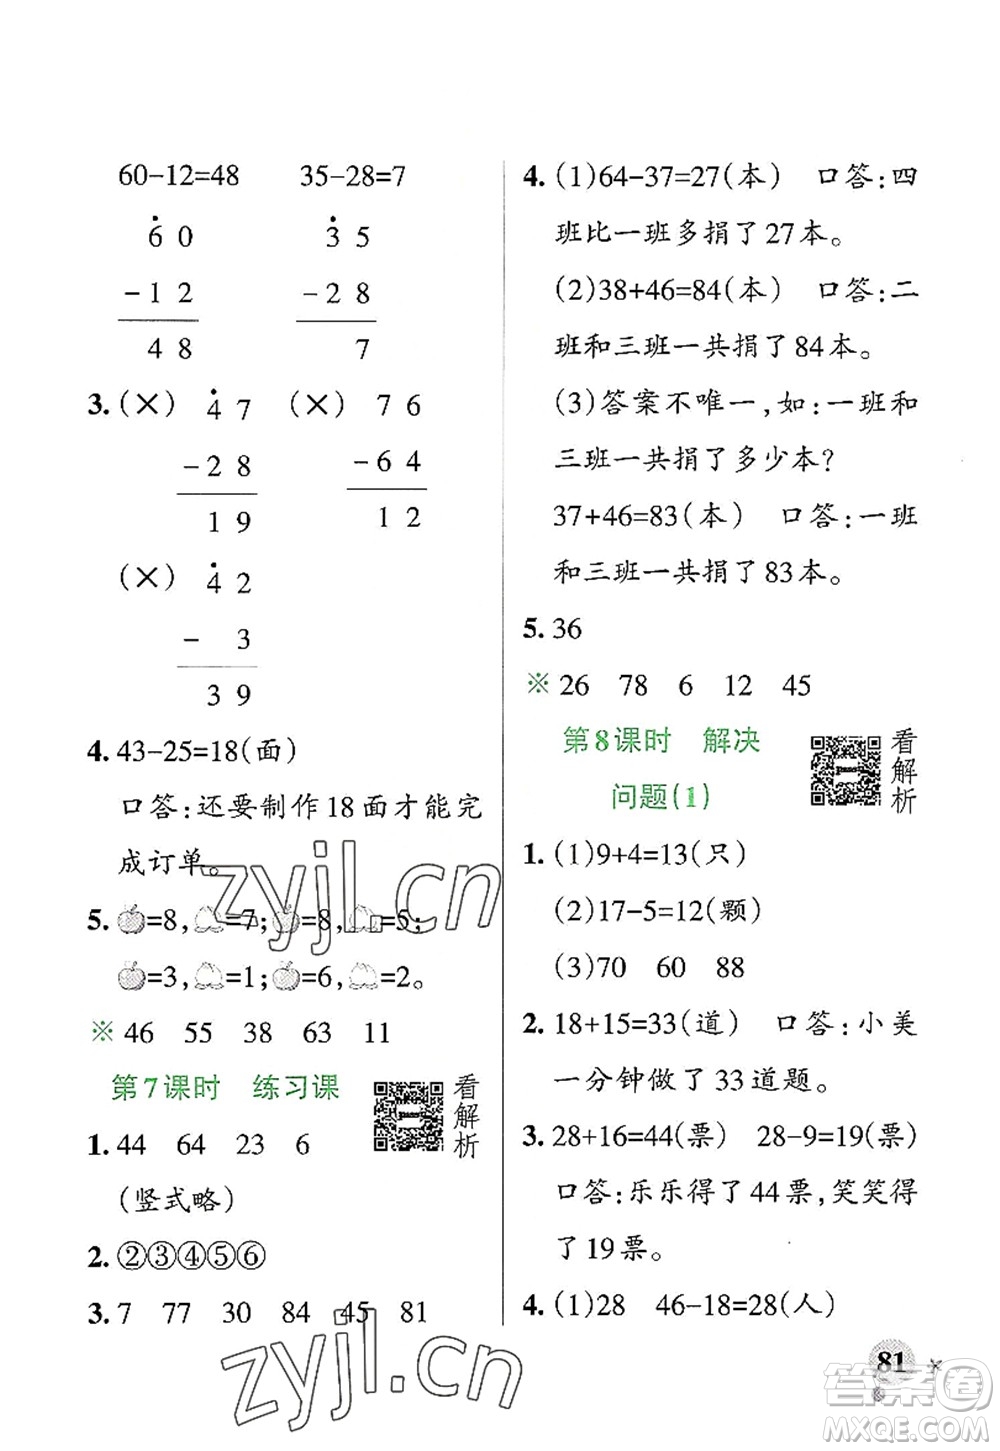 60-12=48 35-28=7
6 0 3 5
-1 2 -2 8
4 8 7
3.(×) 4 7 (×) 7 6
-2 8 -6 4
1 9 1 2
(×) 4 2
- 3
3 9
4. 43-25=18(面)
口答:还要制作18面才能完
成订单。
5. =8, =7; =8, =5;
=3, =1; =6, =2。
※ 46 55 38 63 11
第7课时 练习课
看解析
1. 44 64 23 6
(竖式略)
2. ②③④⑤⑥
3. 7 77 30 84 45 81
4. (1)64-37=27(本) 口答:四
班比一班多捐了27本。
(2)38+46=84(本) 口答:二
班和三班一共捐了84本。
(3)答案不唯一,如:一班和
三班一共捐了多少本?
37+46=83(本) 口答:一班
和三班一共捐了83本。
5. 36
※ 26 78 6 12 45
第8课时 解决
问题(1)
看解析
1. (1)9+4=13(只)
(2)17-5=12(颗)
(3)70 60 88
2. 18+15=33(道) 口答:小美
一分钟做了33道题。
3. 28+16=44(票) 28-9=19(票)
口答:乐乐得了44票,笑笑得
了19票。
4. (1)28 46-18=28(人)
81
zyjl.cn
zyjl.cn
答案圈
MXQE.COM